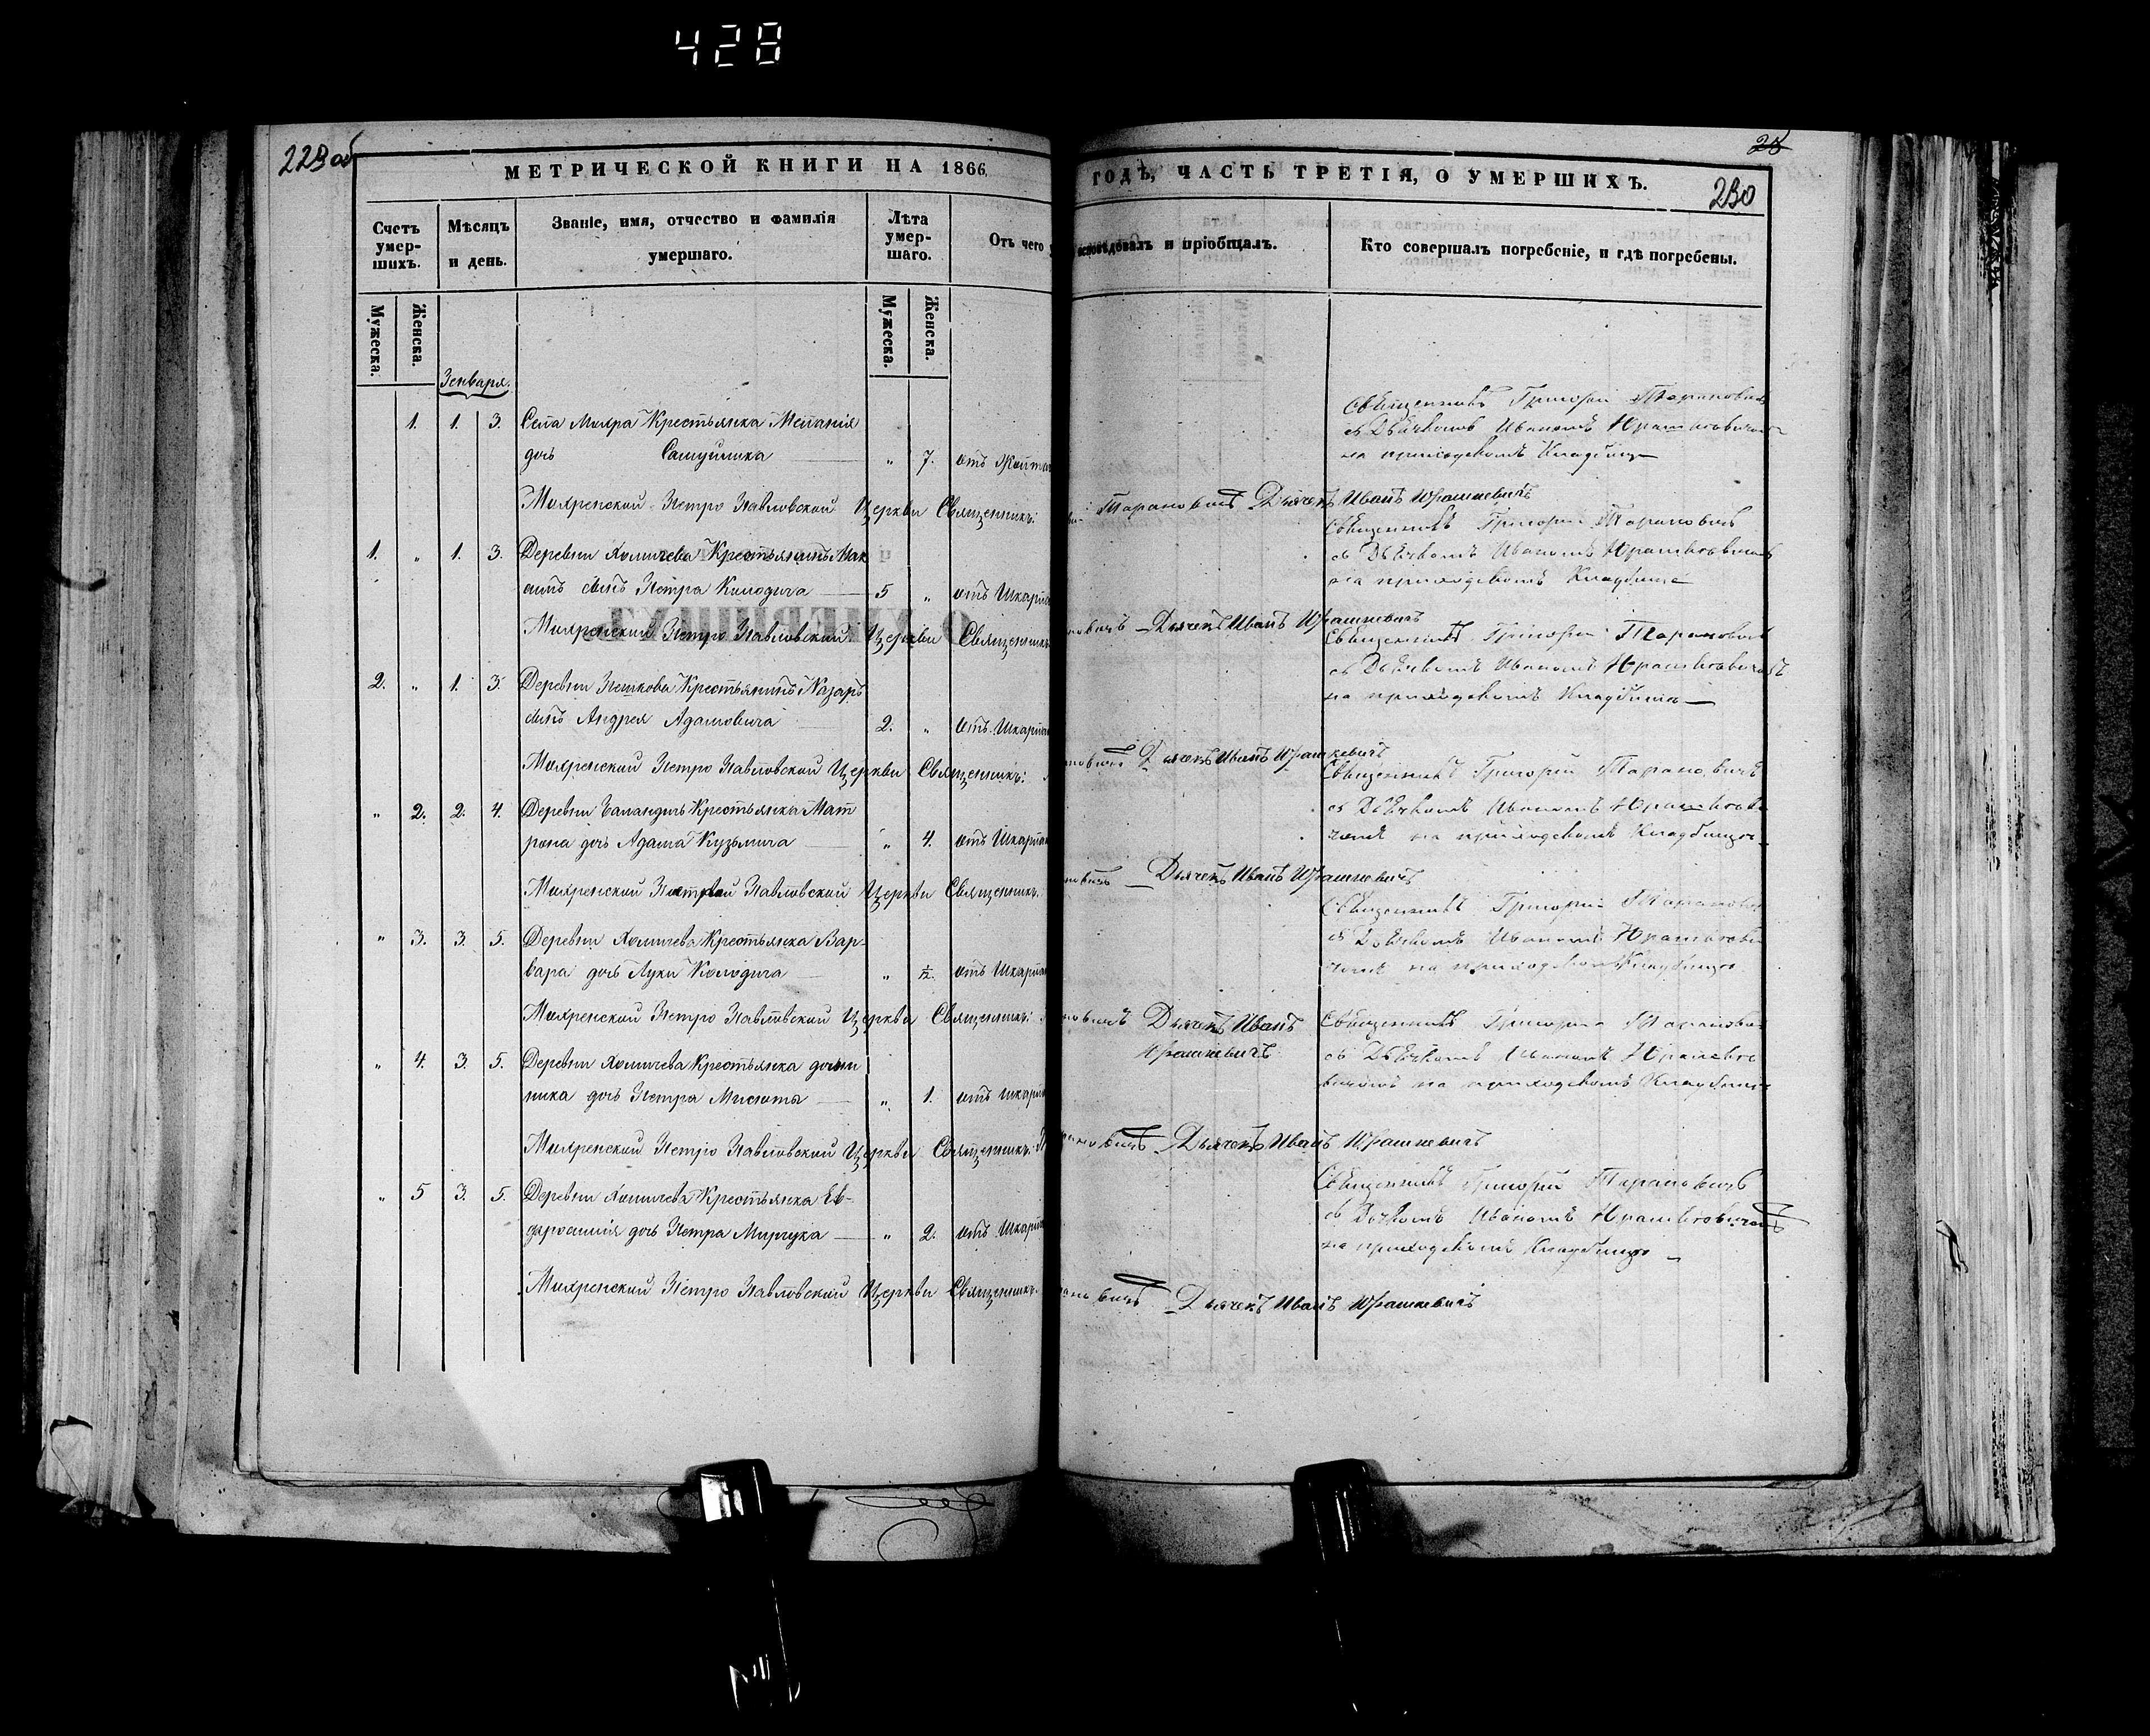 428
229об
28
230
МЕТРИЧЕСКОЙ КНИГИ НА 1866
ГОДЪ, ЧАСТЬ ТРЕТІЯ, О УМЕРШИХЪ.
Счетъ умер-шихъ.
Мѣсяцъ и день.
Званіе, имя, отчество и фамилія
умершаго.
Лѣта умер-шаго.
Отъ чего
исповѣдовалъ и пріобщалъ.
Кто совершалъ погребеніе, и гдѣ погребены.
Мужеска. Женска.
Мужеска. Женска.
Генваря.
1. 1. 3. Села Мохра Крестьянка Меланія
дочь Самуйлика „ 7. отъ
Священникъ Григорій Тарановичъ
съ Дьячкомъ Иваномъ Юрашкевичомъ
на приходскомъ Кладбищѣ
Мохренской Петро Павловской Церкви Священникъ: Тарановичъ Дьячекъ Иванъ Юрашкевичъ
1. „ 1. 3. Деревни Хомичева Крестьянинъ
сынъ Петра Колодича 5 „ отъ Шкарла
Священникъ Григорій Тарановичъ
съ Дьячкомъ Иваномъ Юрашкевичомъ
на приходскомъ Кладбище
Мохренской Петро Павловской Церкви Священникъ Дьячекъ Иванъ Юрашкевичъ
2. „ 1. 3. Деревни Крестьянинъ Назаръ
сынъ Андрея Адамовича 2. „ отъ Шкарла
Священникъ Григорій Тарановичъ
съ Дьячкомъ Иваномъ Юрашкевичомъ
на приходскомъ Кладбищѣ
Мохренской Петро Павловской Церкви Священникъ: Дьячекъ Иванъ Юрашкевичъ
„ 2. 2. 4. Деревни Крестьянка Мат
рона дочь Адама Кузьмича „ 4. отъ Шкарла
Священникъ Григорій Тарановичъ
съ Дьячкомъ Иваномъ Юрашкеви
чомъ на приходскомъ Кладбищѣ
Мохренской Павловской Церкви Священникъ. Дьячекъ Иванъ Юрашкевичъ
„ 3. 3. 5. Деревни Хомичева Крестьянка Вар-
вара дочь Луки Колодича „ ½ отъ Шкарла
Священникъ Григорій Таранович
съ Дьячкомъ Иваномъ Юрашкеви
чомъ на приходскомъ Кладбищѣ
Мохренской Петро Павловской Церкви Священникъ: Дьячекъ Иванъ
Юрашкевичъ
„ 4. 3. 5. Деревни Хомичева Крестьянка
ника дочь Петра Мисюты „ 1. отъ шкарла
Священникъ Григорій Таранови
съ Дьячкомъ Иваномъ Юрашке
вичомъ на приходскомъ Кладбищѣ
Мохренской Петро Павловской Церкви Священникъ: Дьячекъ Иванъ Юрашкевичъ
„ 5 3. 5. Деревни Хомичева Крестьянка Ев-
фросинія дочь Петра „ 2. отъ Шкарла
Священникъ Григорій Тарановичъ
съ Дьячкомъ Иваномъ Юрашкевичомъ
на приходскомъ Кладбищѣ
Мохренской Петро Павловской Церкви Священникъ. Дьячекъ Иванъ Юрашкевичъ